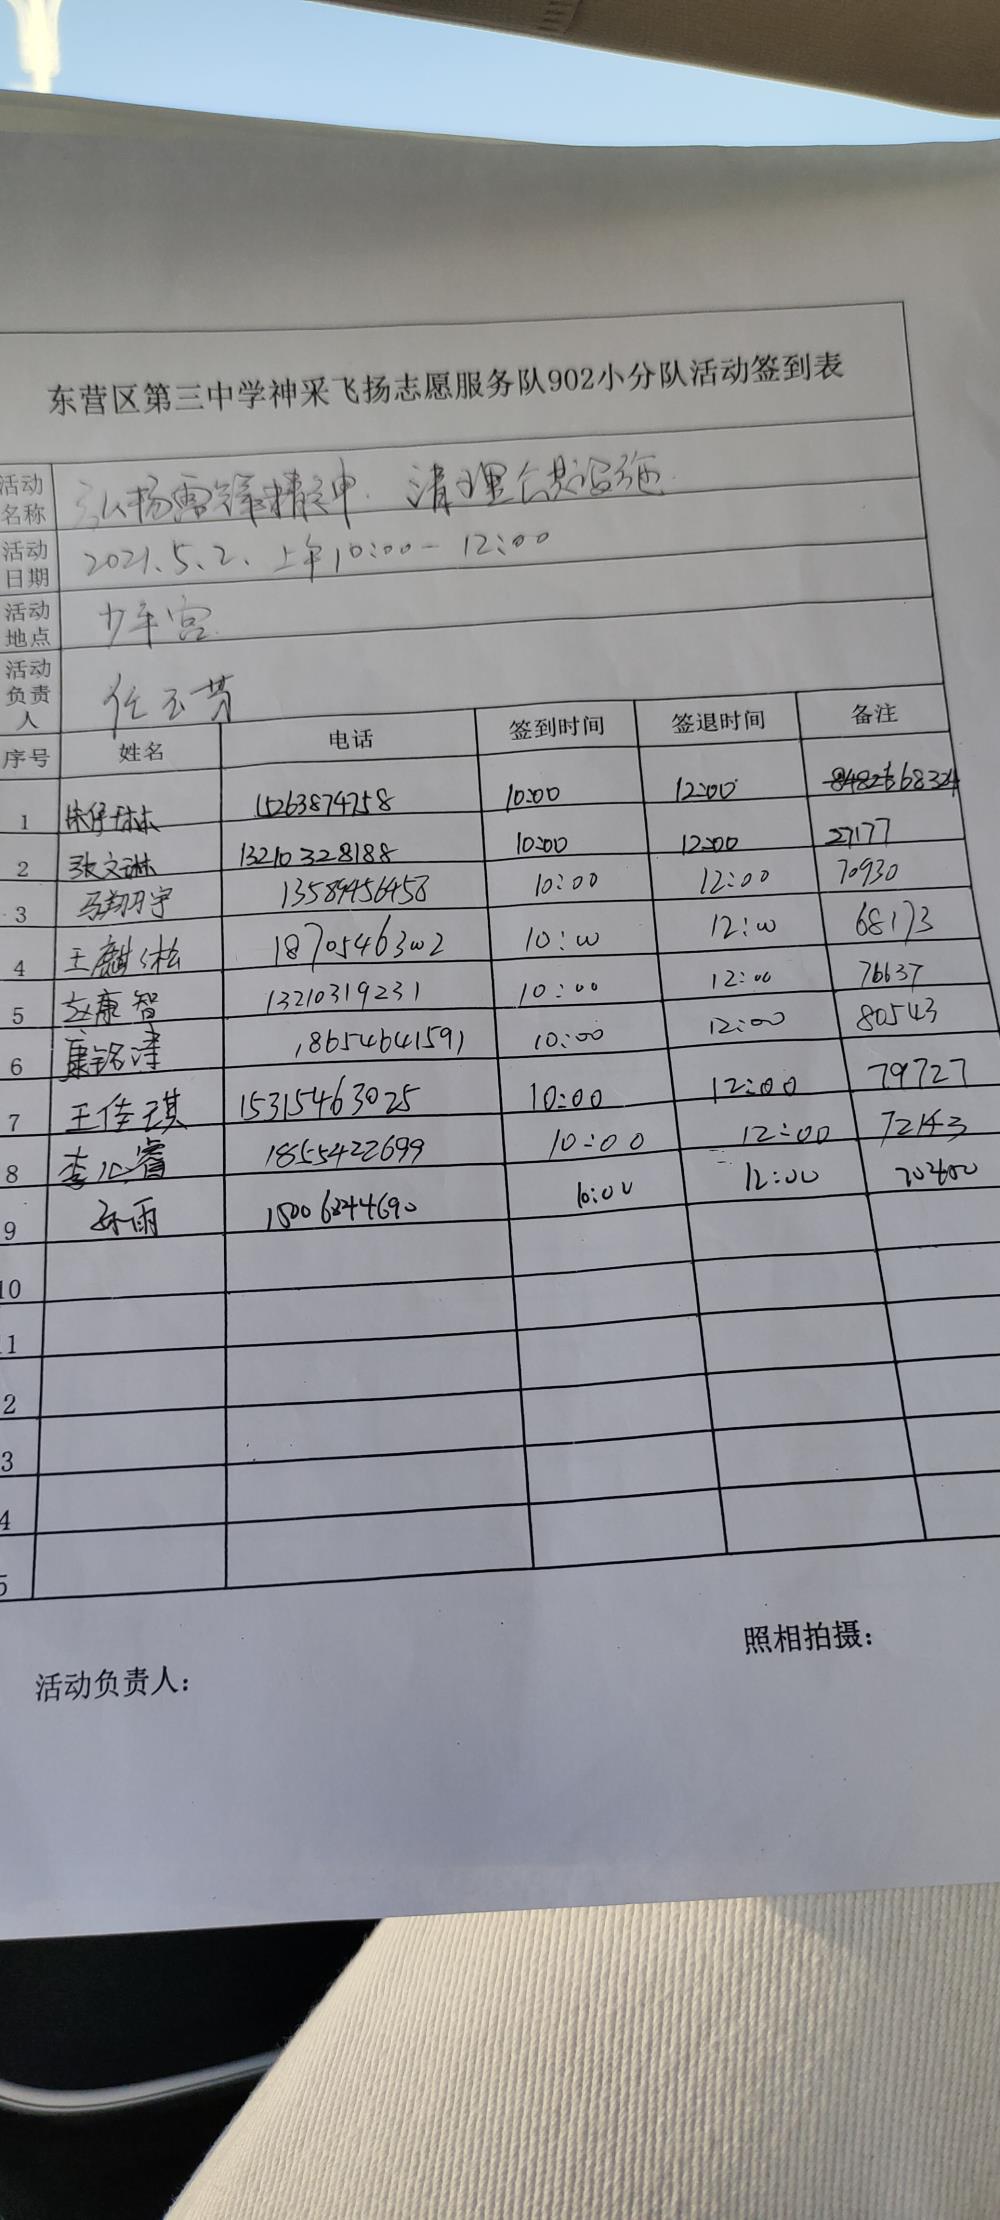 东营区第三中学神采飞扬志愿服务队902小分队活动签到表
活动名称 弘扬雷锋精神. 清理公共设施
活动日期 2021.5.2. 上午10:00-12:00
活动地点 少年宫
活动负责人 任玉芳
序号 姓名 电话 签到时间 签退时间 备注
1 15263874758 10:00 12:00 68324
2 张文琳 13210328188 10:00 12:00 27177
3 马翔宇 13589456458 10:00 12:00 70930
4 王麒松 18705463002 10:00 12:00 68173
5 赵康智 13210319231 10:00 12:00 76637
6 康铭津 18654641591 10:00 12:00 80543
7 王佳琪 15315463025 10:00 12:00 79727
8 李心睿 1855422699 10:00 12:00 72143
9 孙雨 10:00 12:00
10
11
2
3
4
5
照相拍摄:
活动负责人: